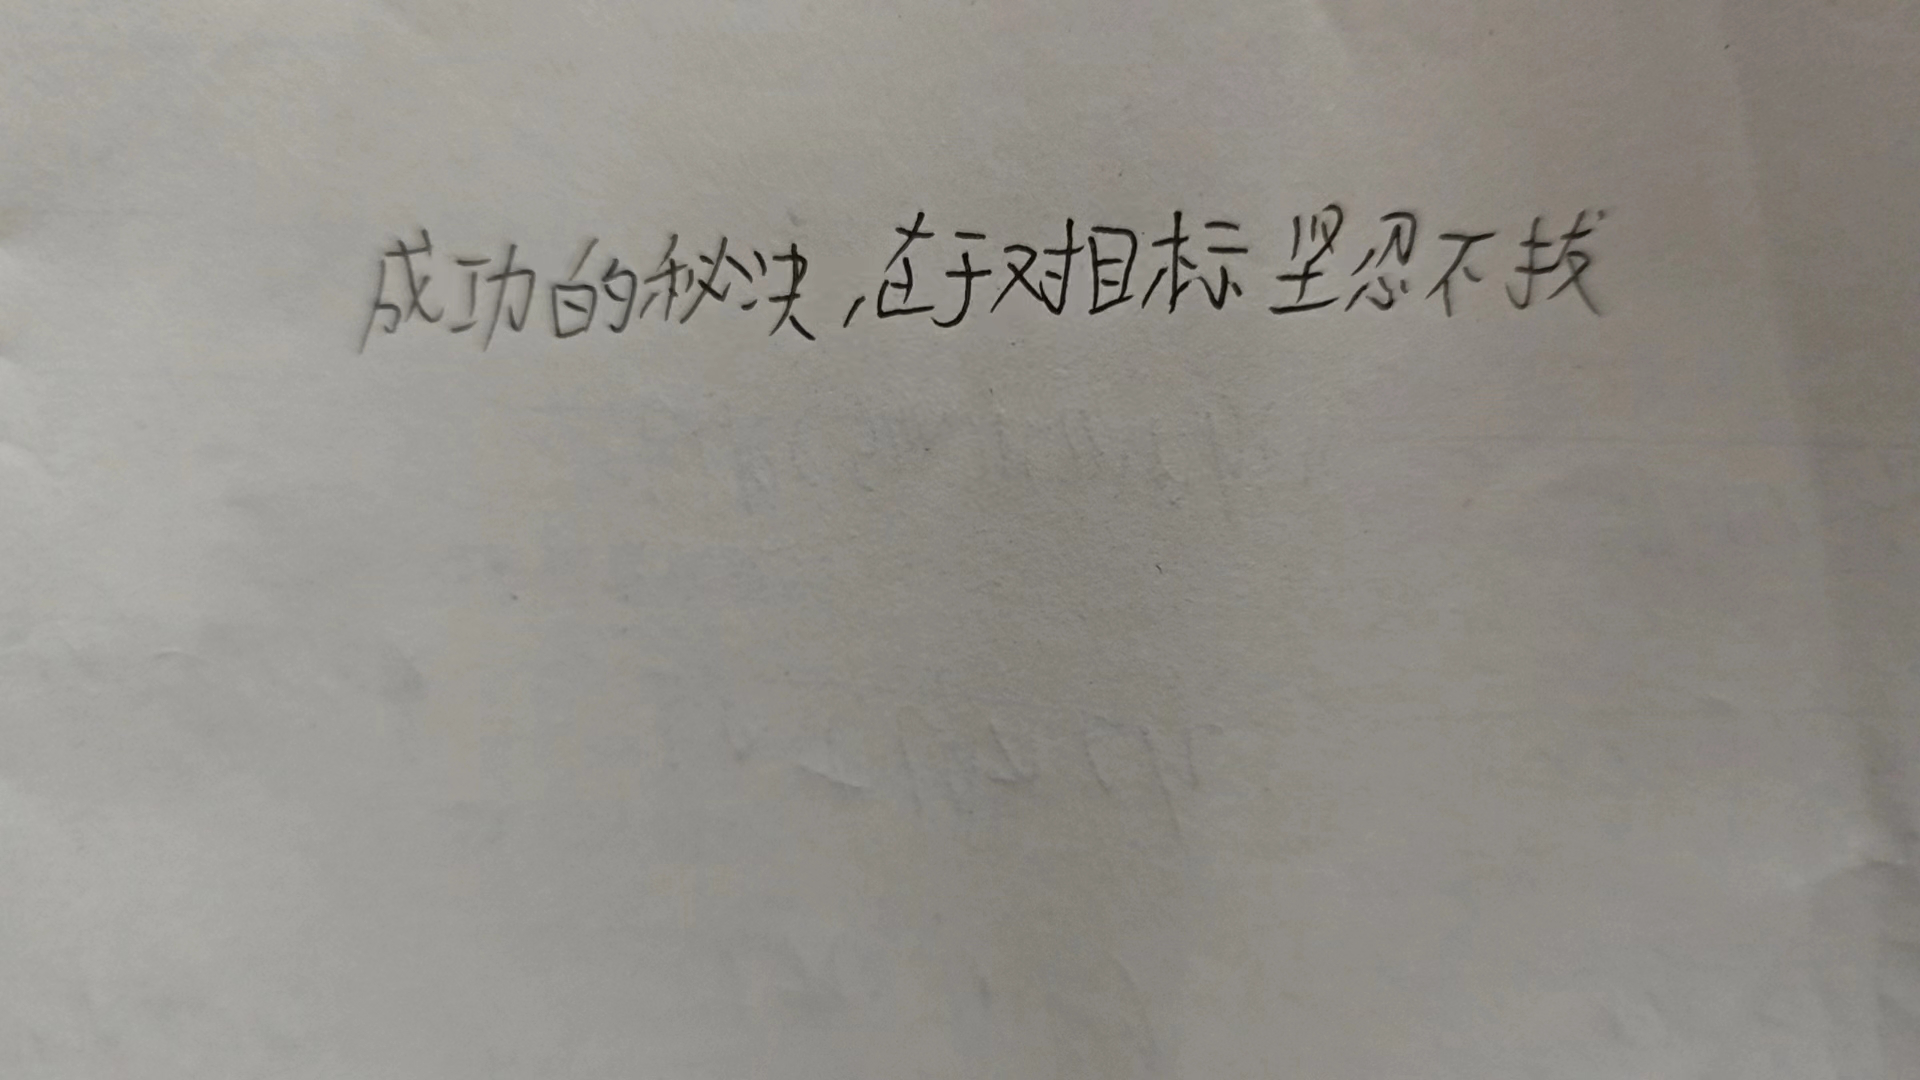 成功的秘决,在于对目标坚忍不拔